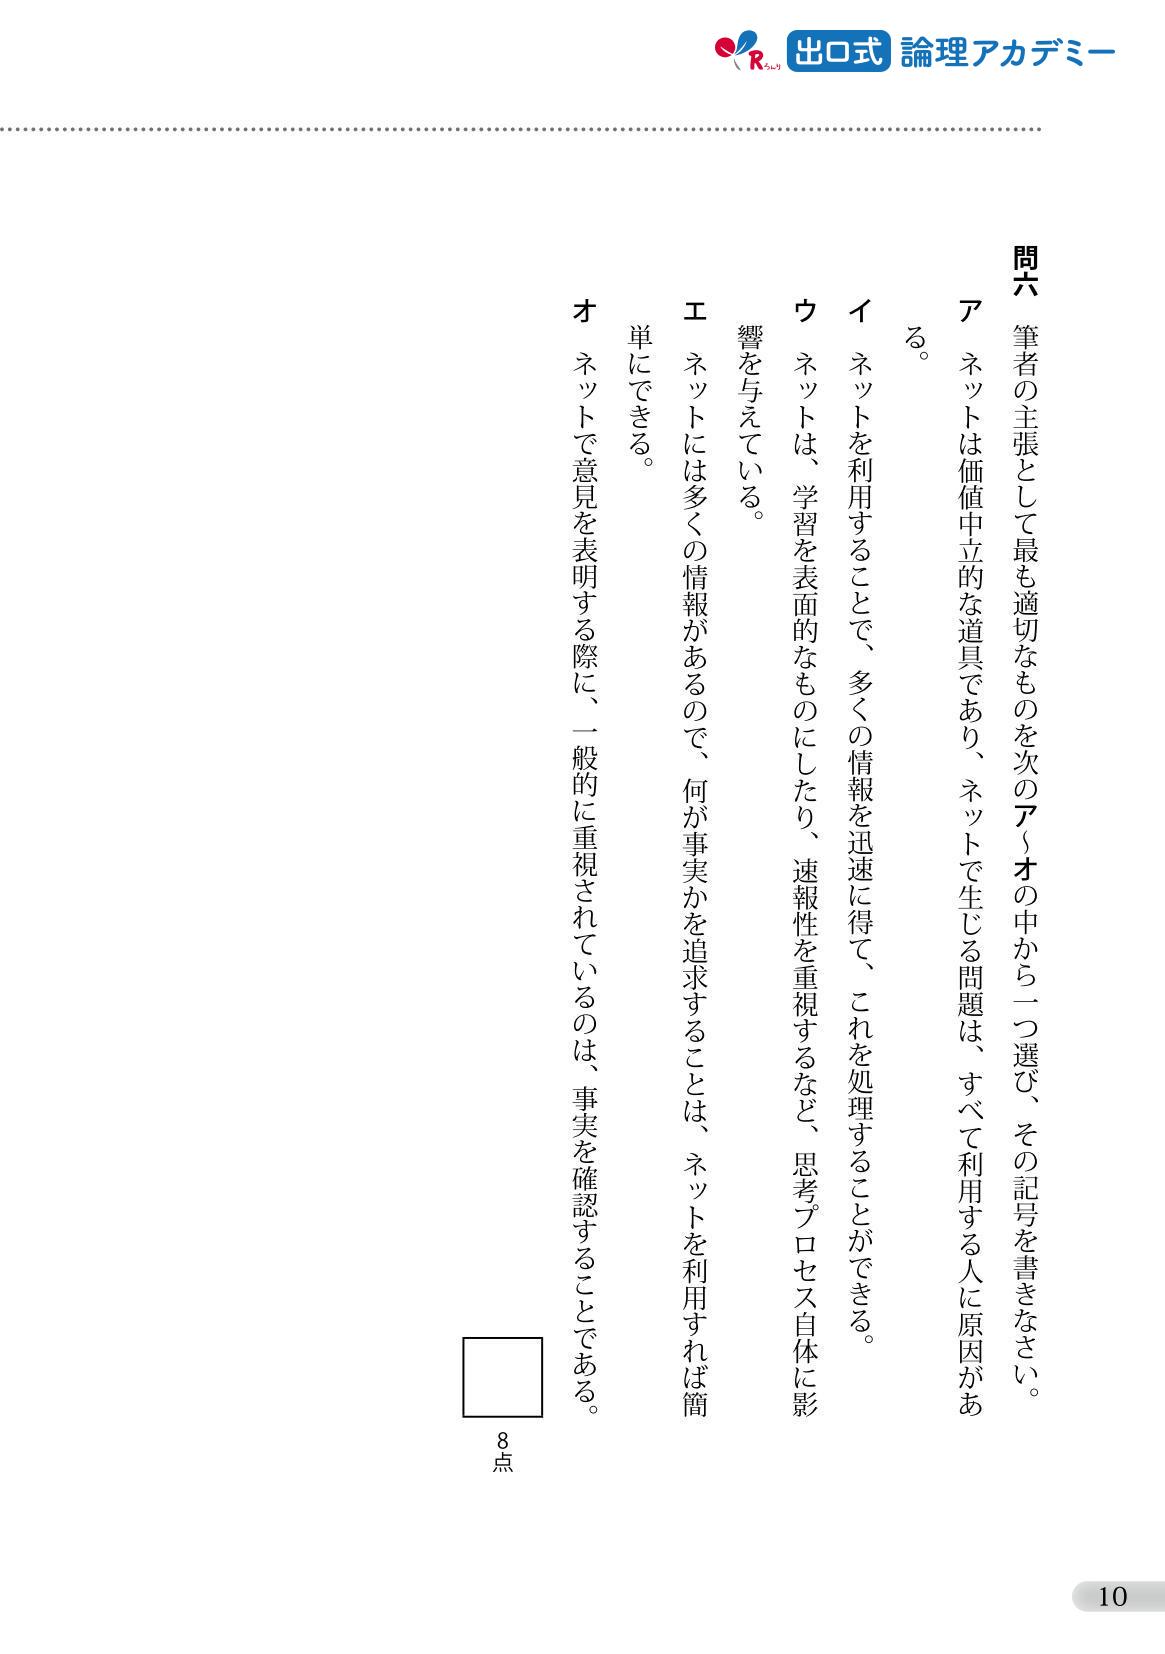 Rろんり 出口式 論理アカデミー
問六　筆者の主張として最も適切なものを次のア～オの中から一つ選び、その記号を書きなさい。
ア　ネットは価値中立的な道具であり、ネットで生じる問題は、すべて利用する人に原因があ
る。
イ　ネットを利用することで、多くの情報を迅速に得て、これを処理することができる。
ウ　ネットは、学習を表面的なものにしたり、速報性を重視するなど、思考プロセス自体に影
響を与えている。
エ　ネットには多くの情報があるので、何が事実かを追求することは、ネットを利用すれば簡
単にできる。
オ　ネットで意見を表明する際に、一般的に重視されているのは、事実を確認することである。
8点
10